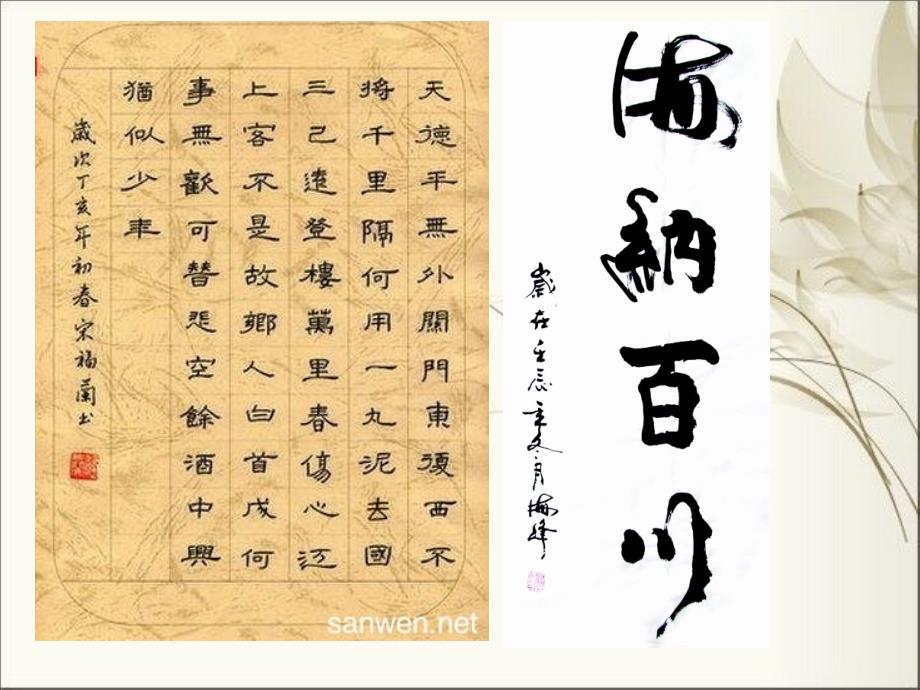 天德平無外關門東復西不
將千里隔何用一丸泥去國
三己遠登樓萬里春傷心江
上客不是故鄉人白首成何
事無歡可替悲空餘酒中興
猶似少年
歲次丁亥年初春宋福蘭书
sanwen.net
海納百川
歲在壬辰冬月海峰